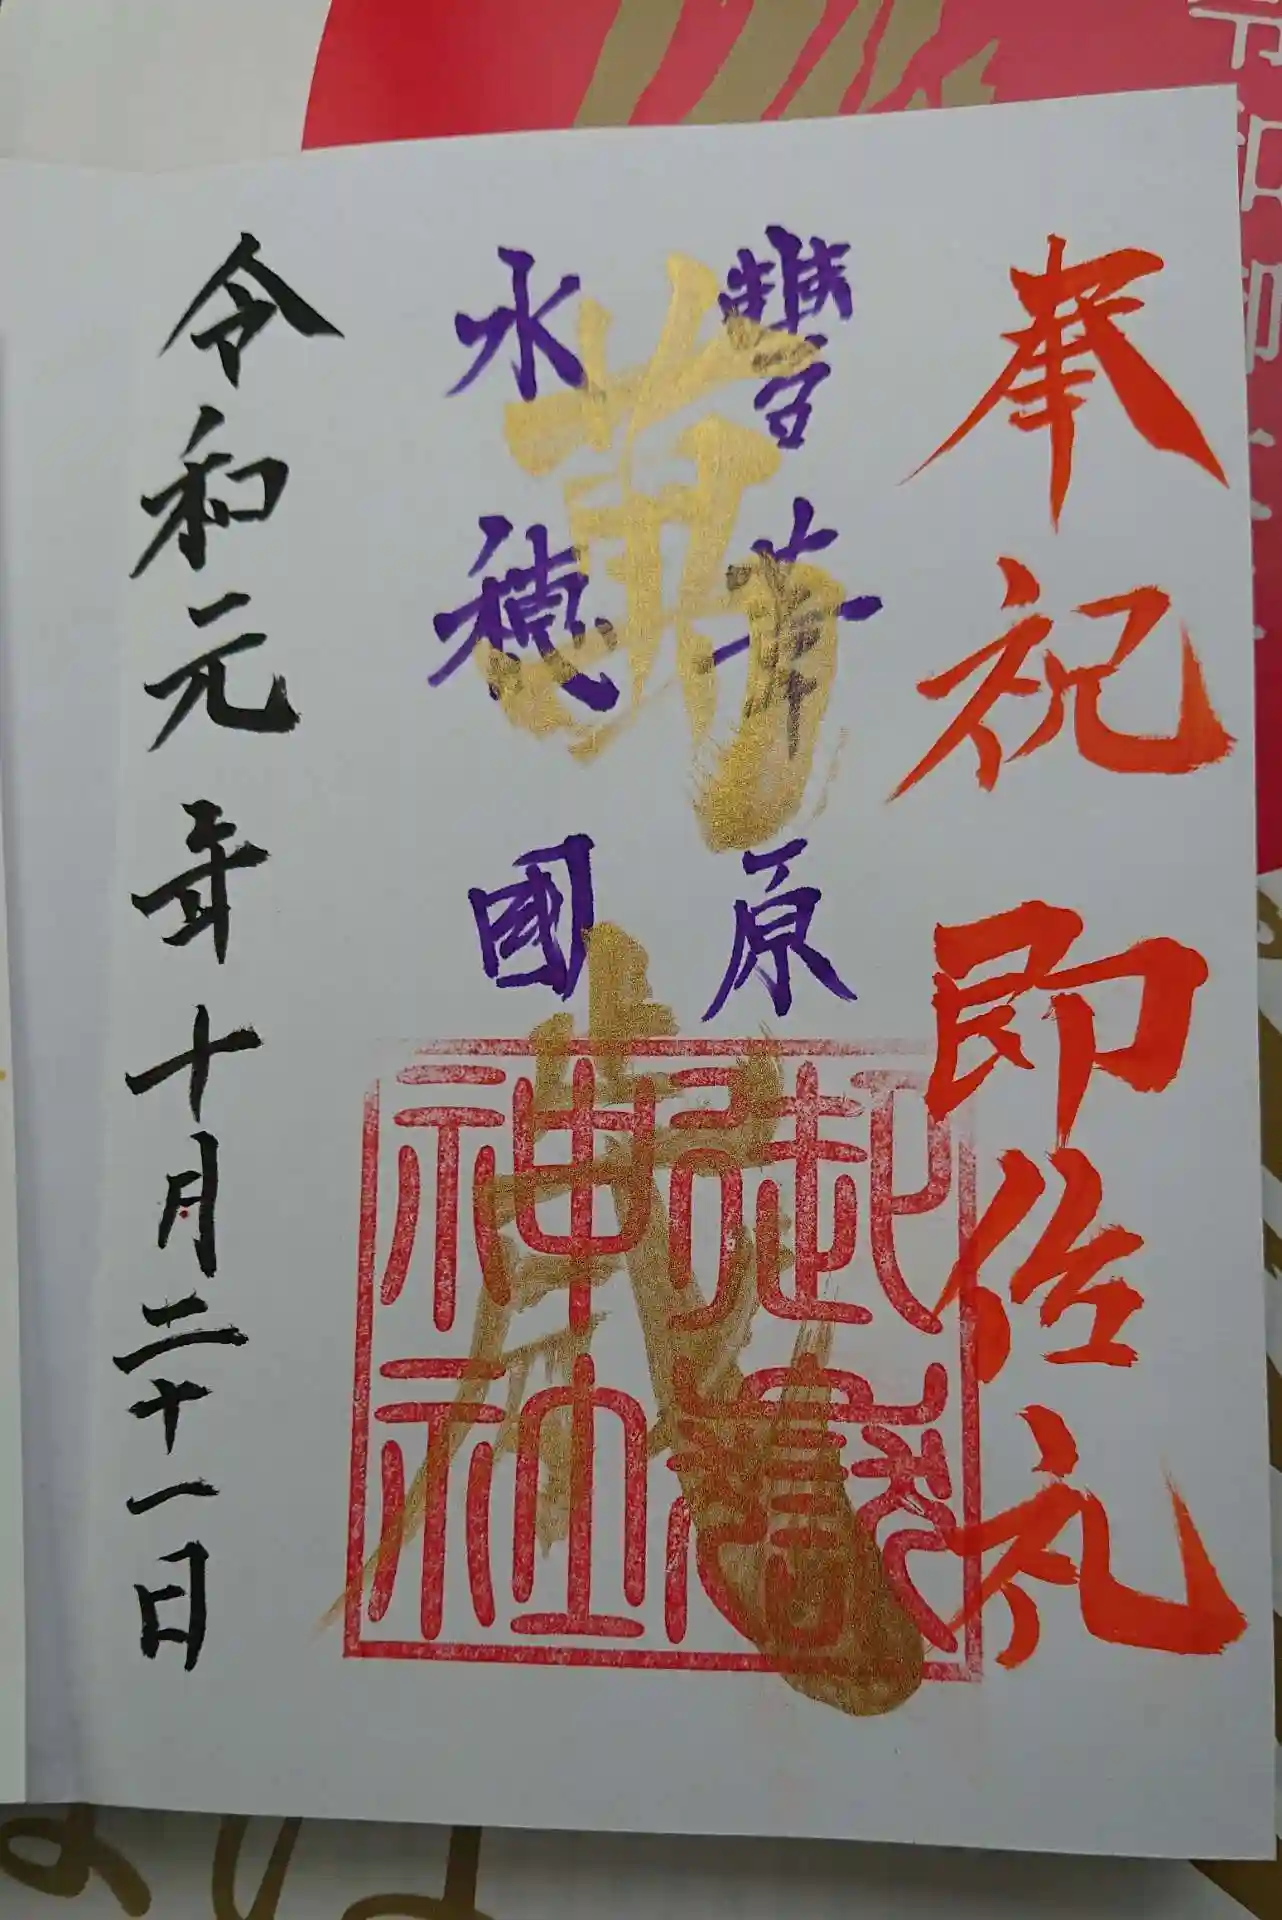 奉祝 即位礼
萬歳
豐葦原
水穂國
令和元年十月二十一日
神社